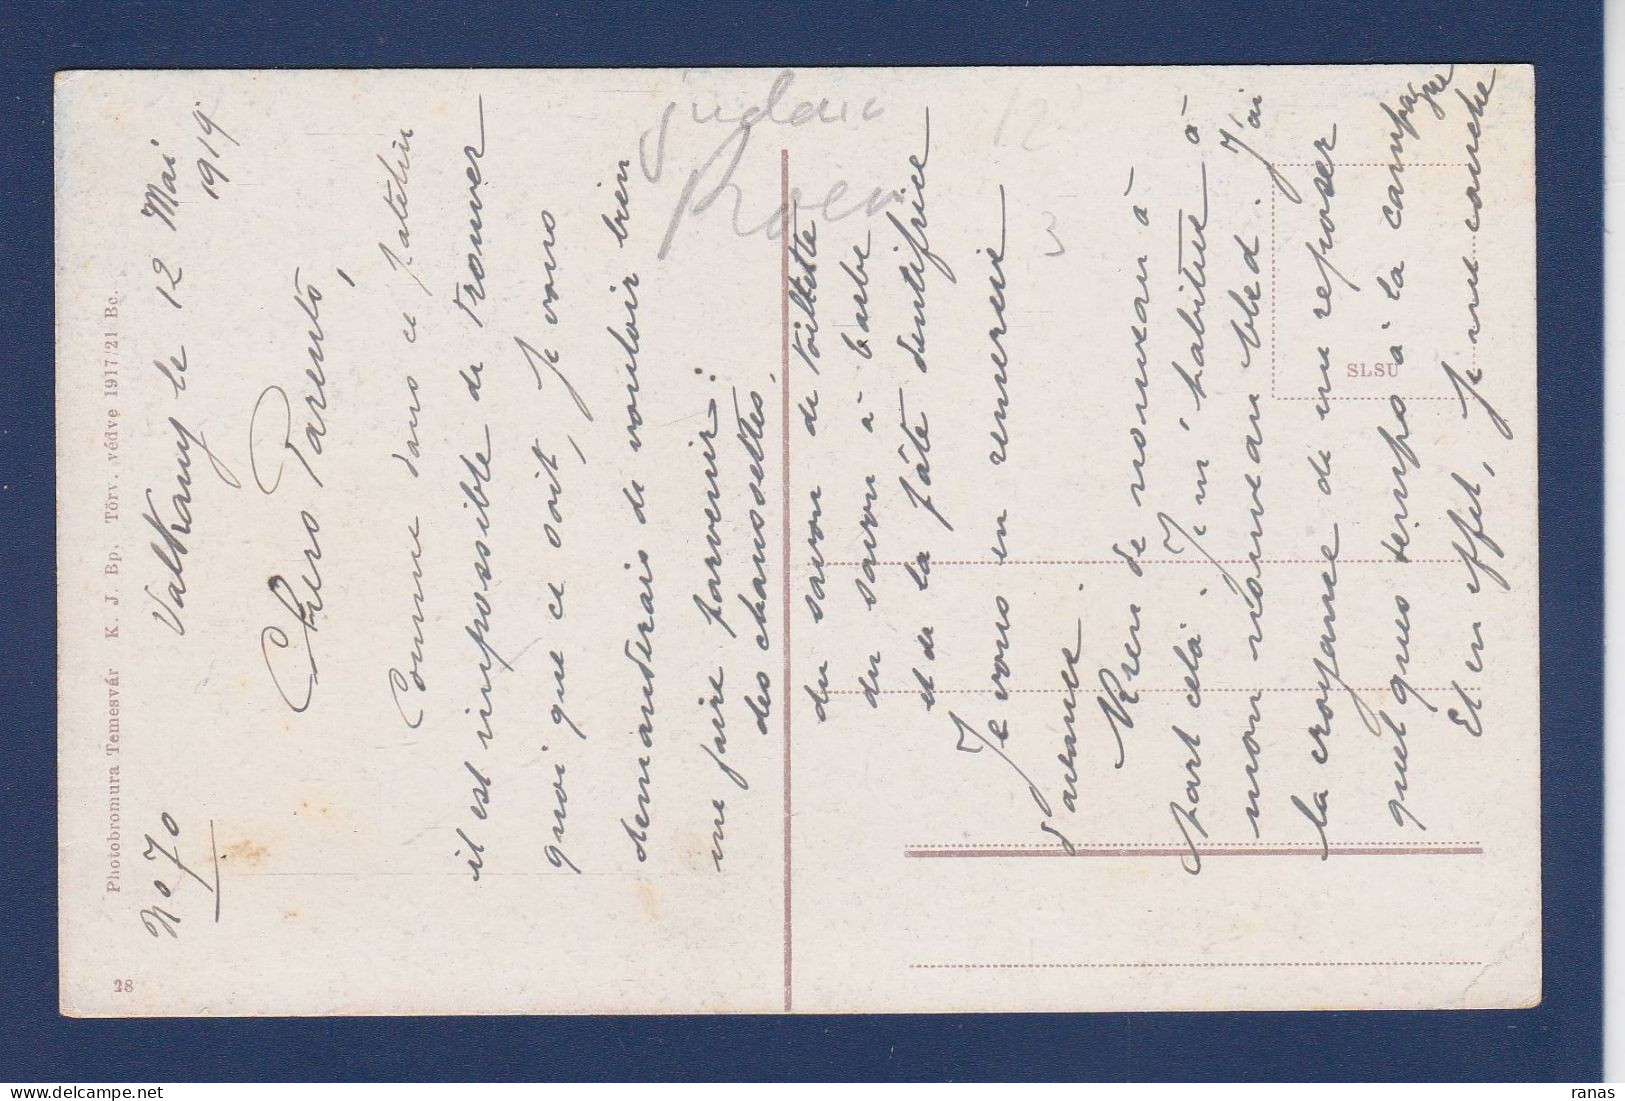 No 70
Valkany le 12 Mai
1919
Chers Parents,
Comme dans ce patelin
il est impossible de trouver
quoi que ce soit, Je vous
demanderais de vouloir bien
me faire parvenir:
des chaussettes,
du savon de toilette
du savon à barbe
et de la pâte dentifrice
Je vous en remercie
d'avance.
Rien de nouveau à
part cela. Je m'habitue à
mon nouveau bled. J'ai
la croyance de me reposer
quelques temps à la campagne
Et en effet, Je me couche
Photobromura Temesvár K. J. Bp. Törv. védve 1917/21 Bc.
28
SLSU
judaic
12
ranas